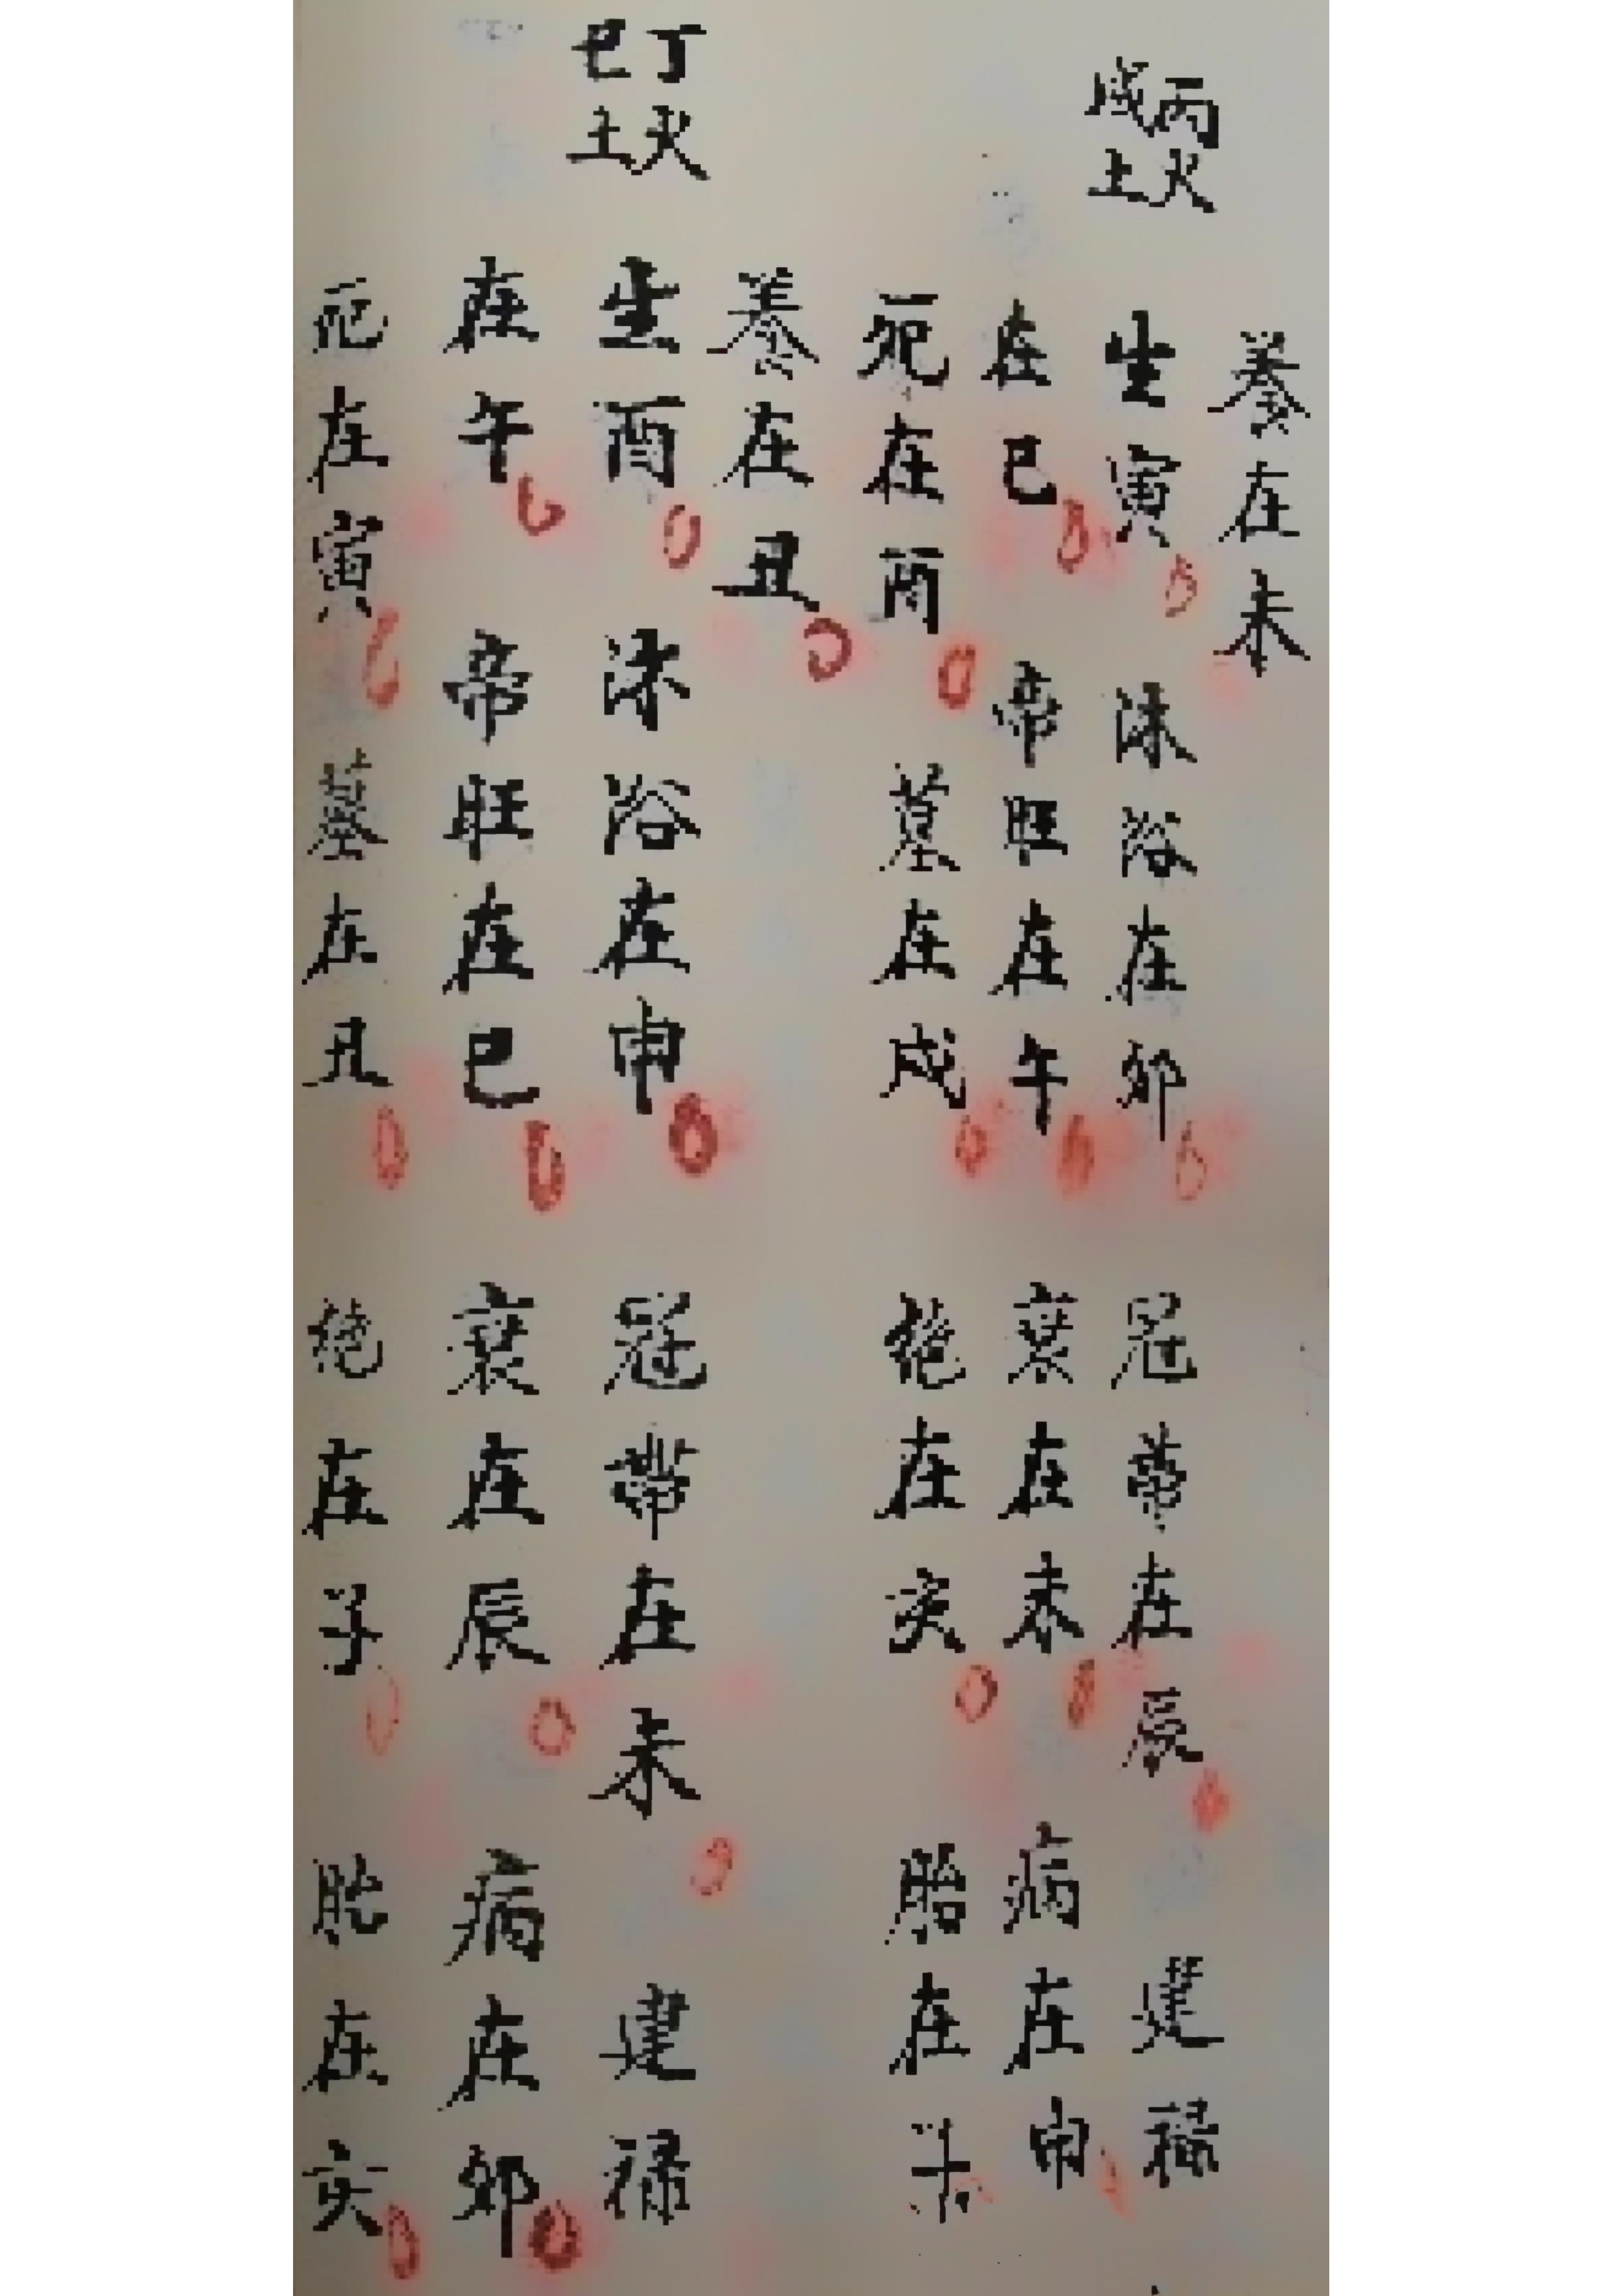 養在未
丙火
戊土
生寅 沐浴在卯 冠帶在辰 建祿
在巳 帝旺在午 衰在未 病在申
死在酉 墓在戌 絕在亥 胎在
養在丑
丁火
己土
生酉 沐浴在申 冠帶在未 建祿
在午 帝旺在巳 衰在辰 病在卯
死在寅 墓在丑 絕在子 胎在亥